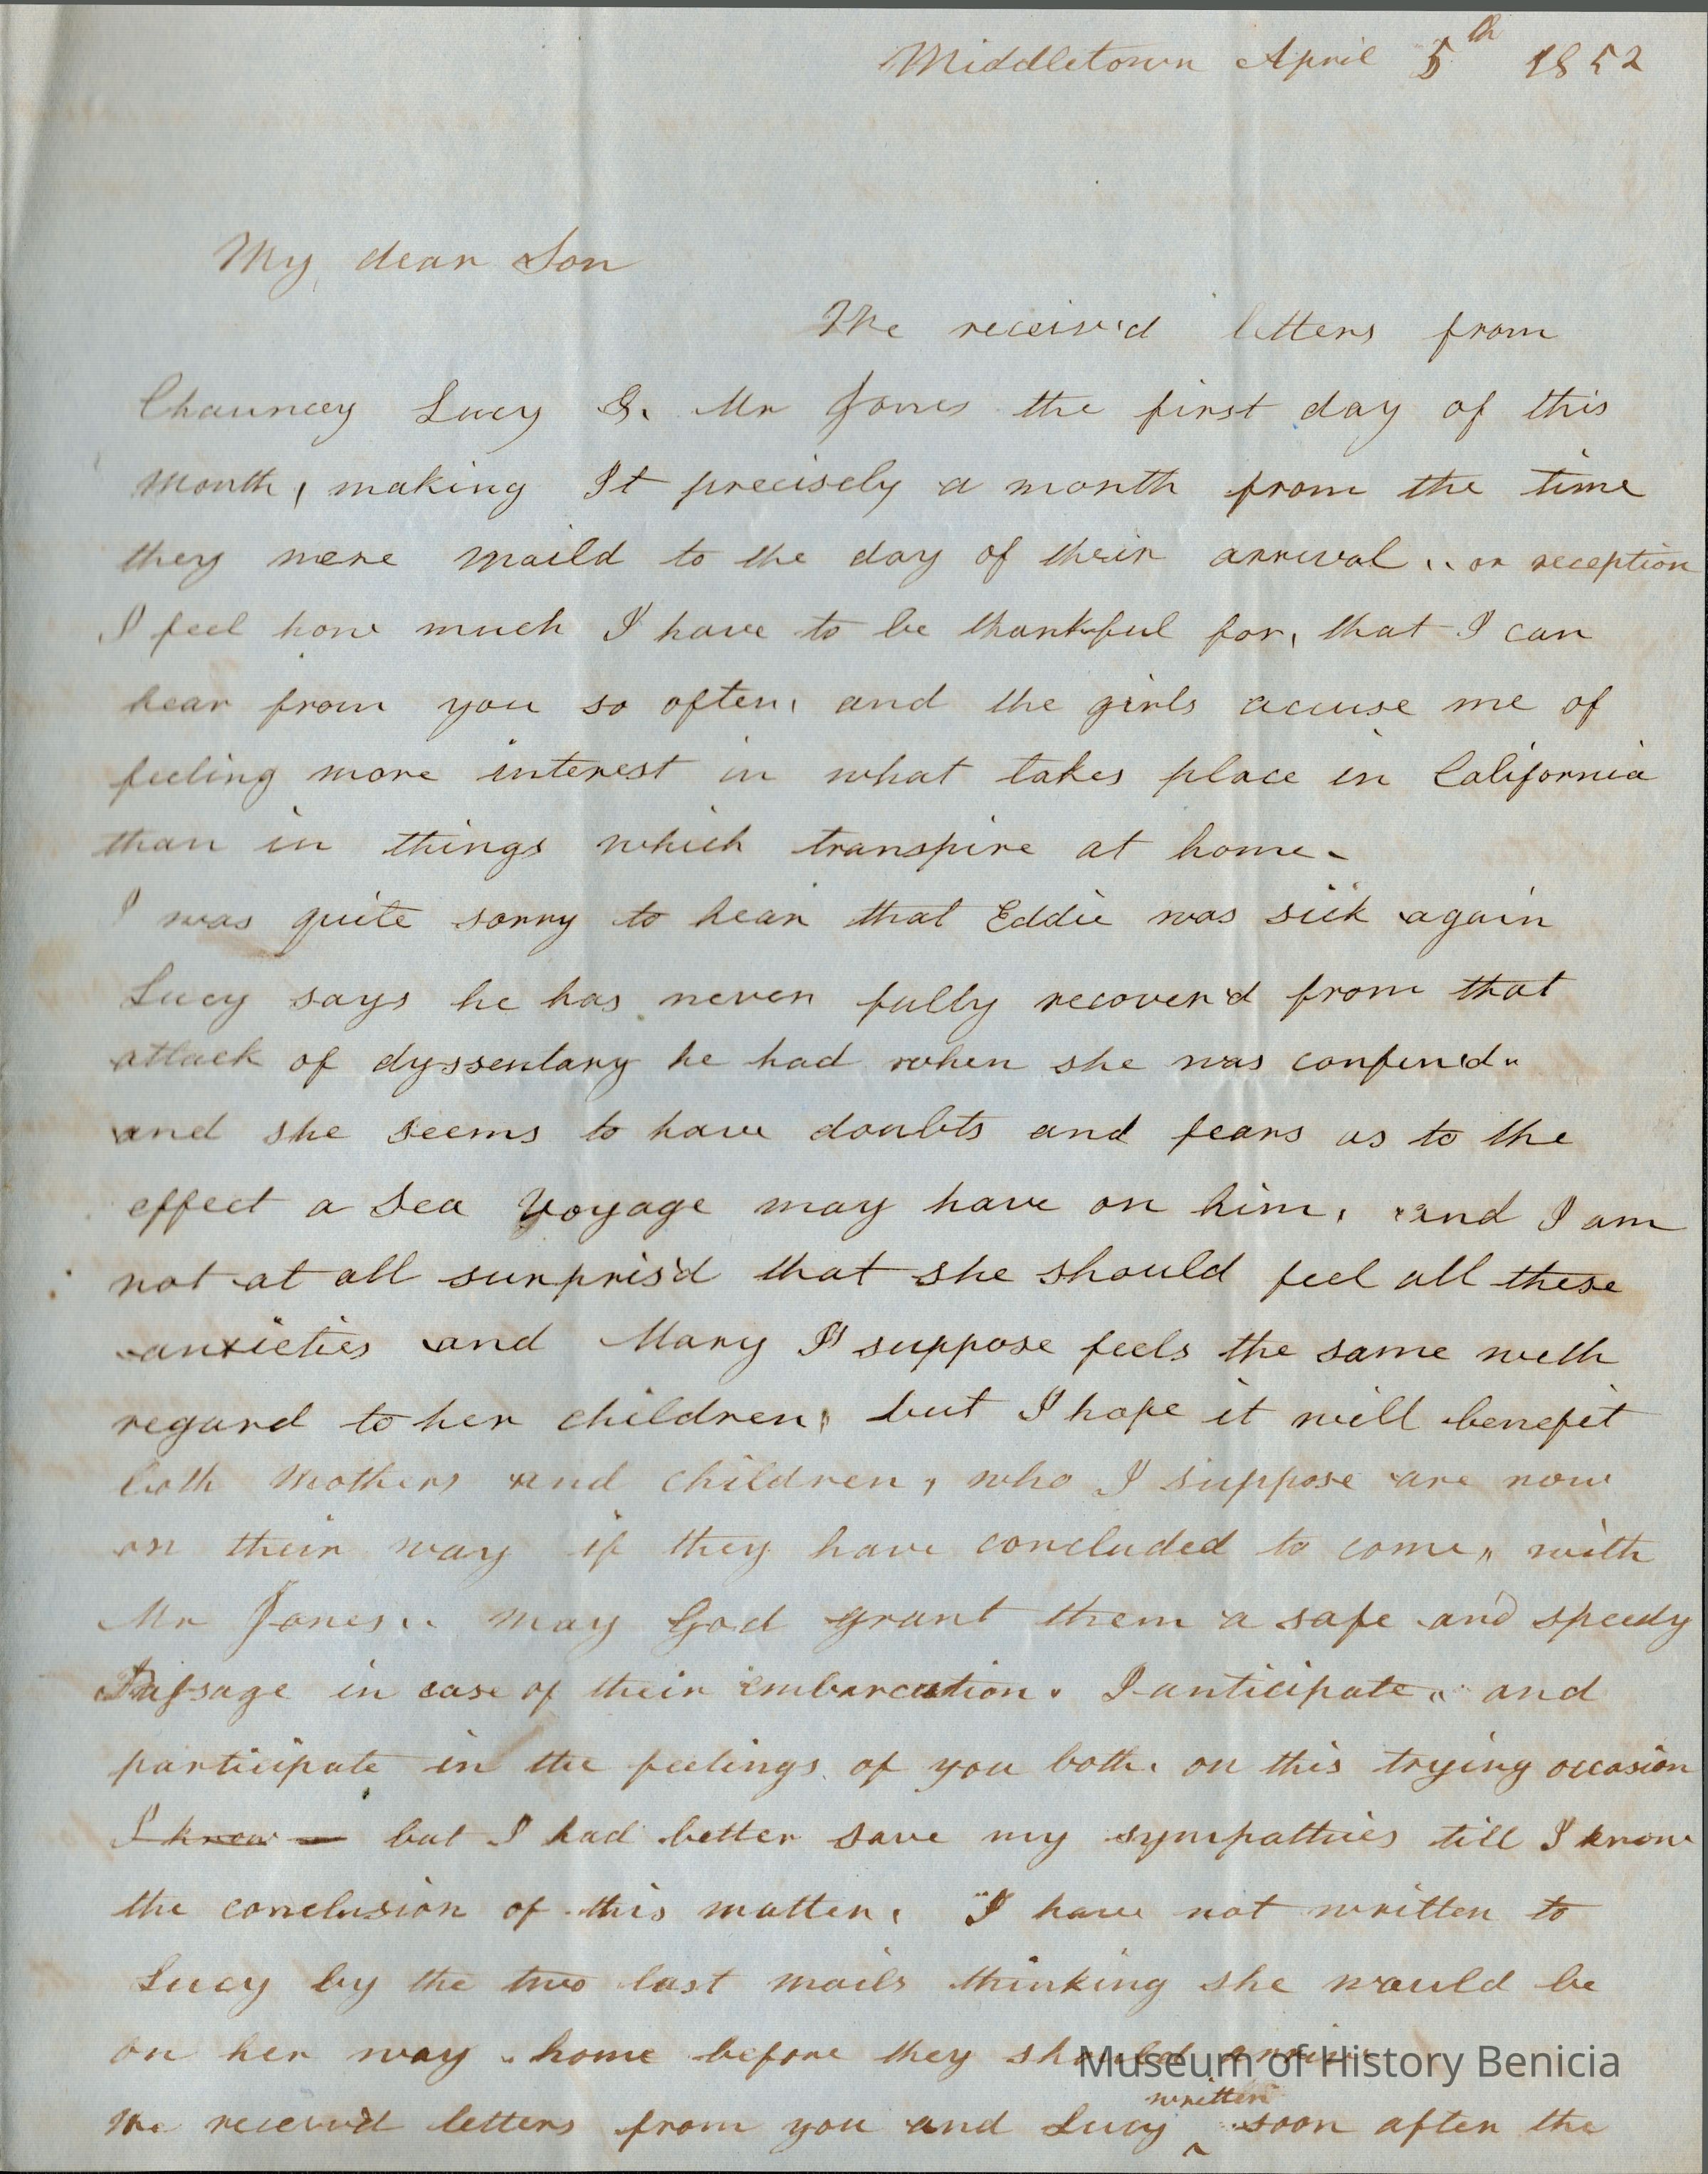 Middletown April 5th 1852
My dear Son
We receiv'd letters from
Chauncey Lucy & Mr Jones the first day of this
Month, making It precisely a month from the time
they were Maild to the day of their arrival .. or reception
I feel how much I have to be thankful for, that I can
hear from you so often, and the girls accuse me of
feeling more interest in what takes place in California
than in things which transpire at home.
I was quite sorry to hear that Eddie was sick again
Lucy says he has never fully recover'd from that
attack of dyssentary he had when she was confin'd..
and she seems to have doubts and fears as to the
effect a Sea Voyage may have on him, and I am
not at all surpris'd that she should feel all these
anxieties and Mary I suppose feels the same with
regard to her children, but I hope it will benefit
both Mothers and children, who I suppose are now
on their way if they have concluded to come, with
Mr Jones.. may God grant them a safe and speedy
Passage in case of their embarcation. I anticipate.. and
participate in the feelings of you both, on this trying occasion
I know — but I had better save my sympathies till I know
the conclusion of this matter. I have not written to
Lucy by the two last mails thinking she would be
on her way home before they should arrive
Museum of History Benicia
written
We receiv'd letters from you and Lucy ^ soon after the